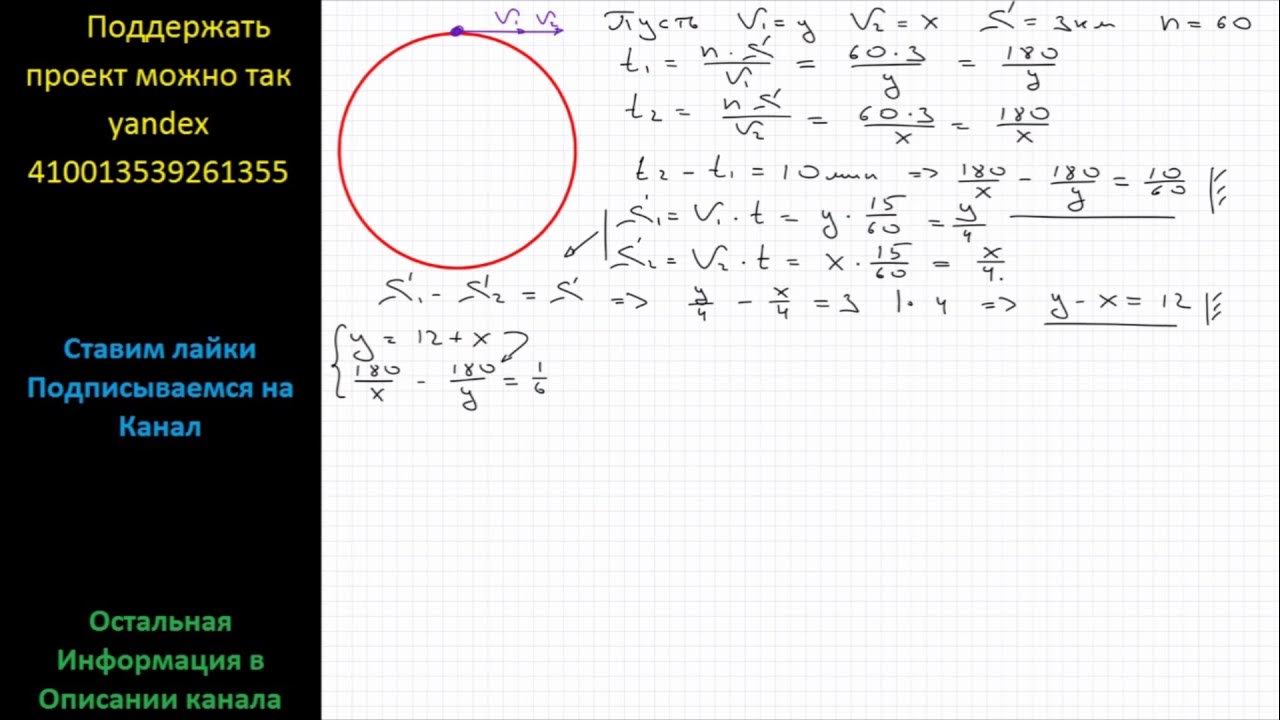 Поддержать
проект можно так
yandex
410013539261355
Ставим лайки
Подписываемся на
Канал
Остальная
Информация в
Описании канала
V₁ V₂
Пусть V₁ = y V₂ = x S = 3 км n = 60
t₁ = n · S / V₁ = 60 · 3 / y = 180 / y
t₂ = n S / V₂ = 60 · 3 / x = 180 / x
t₂ - t₁ = 10 мин => 180/x - 180/y = 10/60
S₁ = V₁ · t = y · 15/60 = y/4
S₂ = V₂ · t = x · 15/60 = x/4.
S₁ - S₂ = S => y/4 - x/4 = 3 | · 4 => y - x = 12
{ y = 12 + x
180/x - 180/y = 1/6